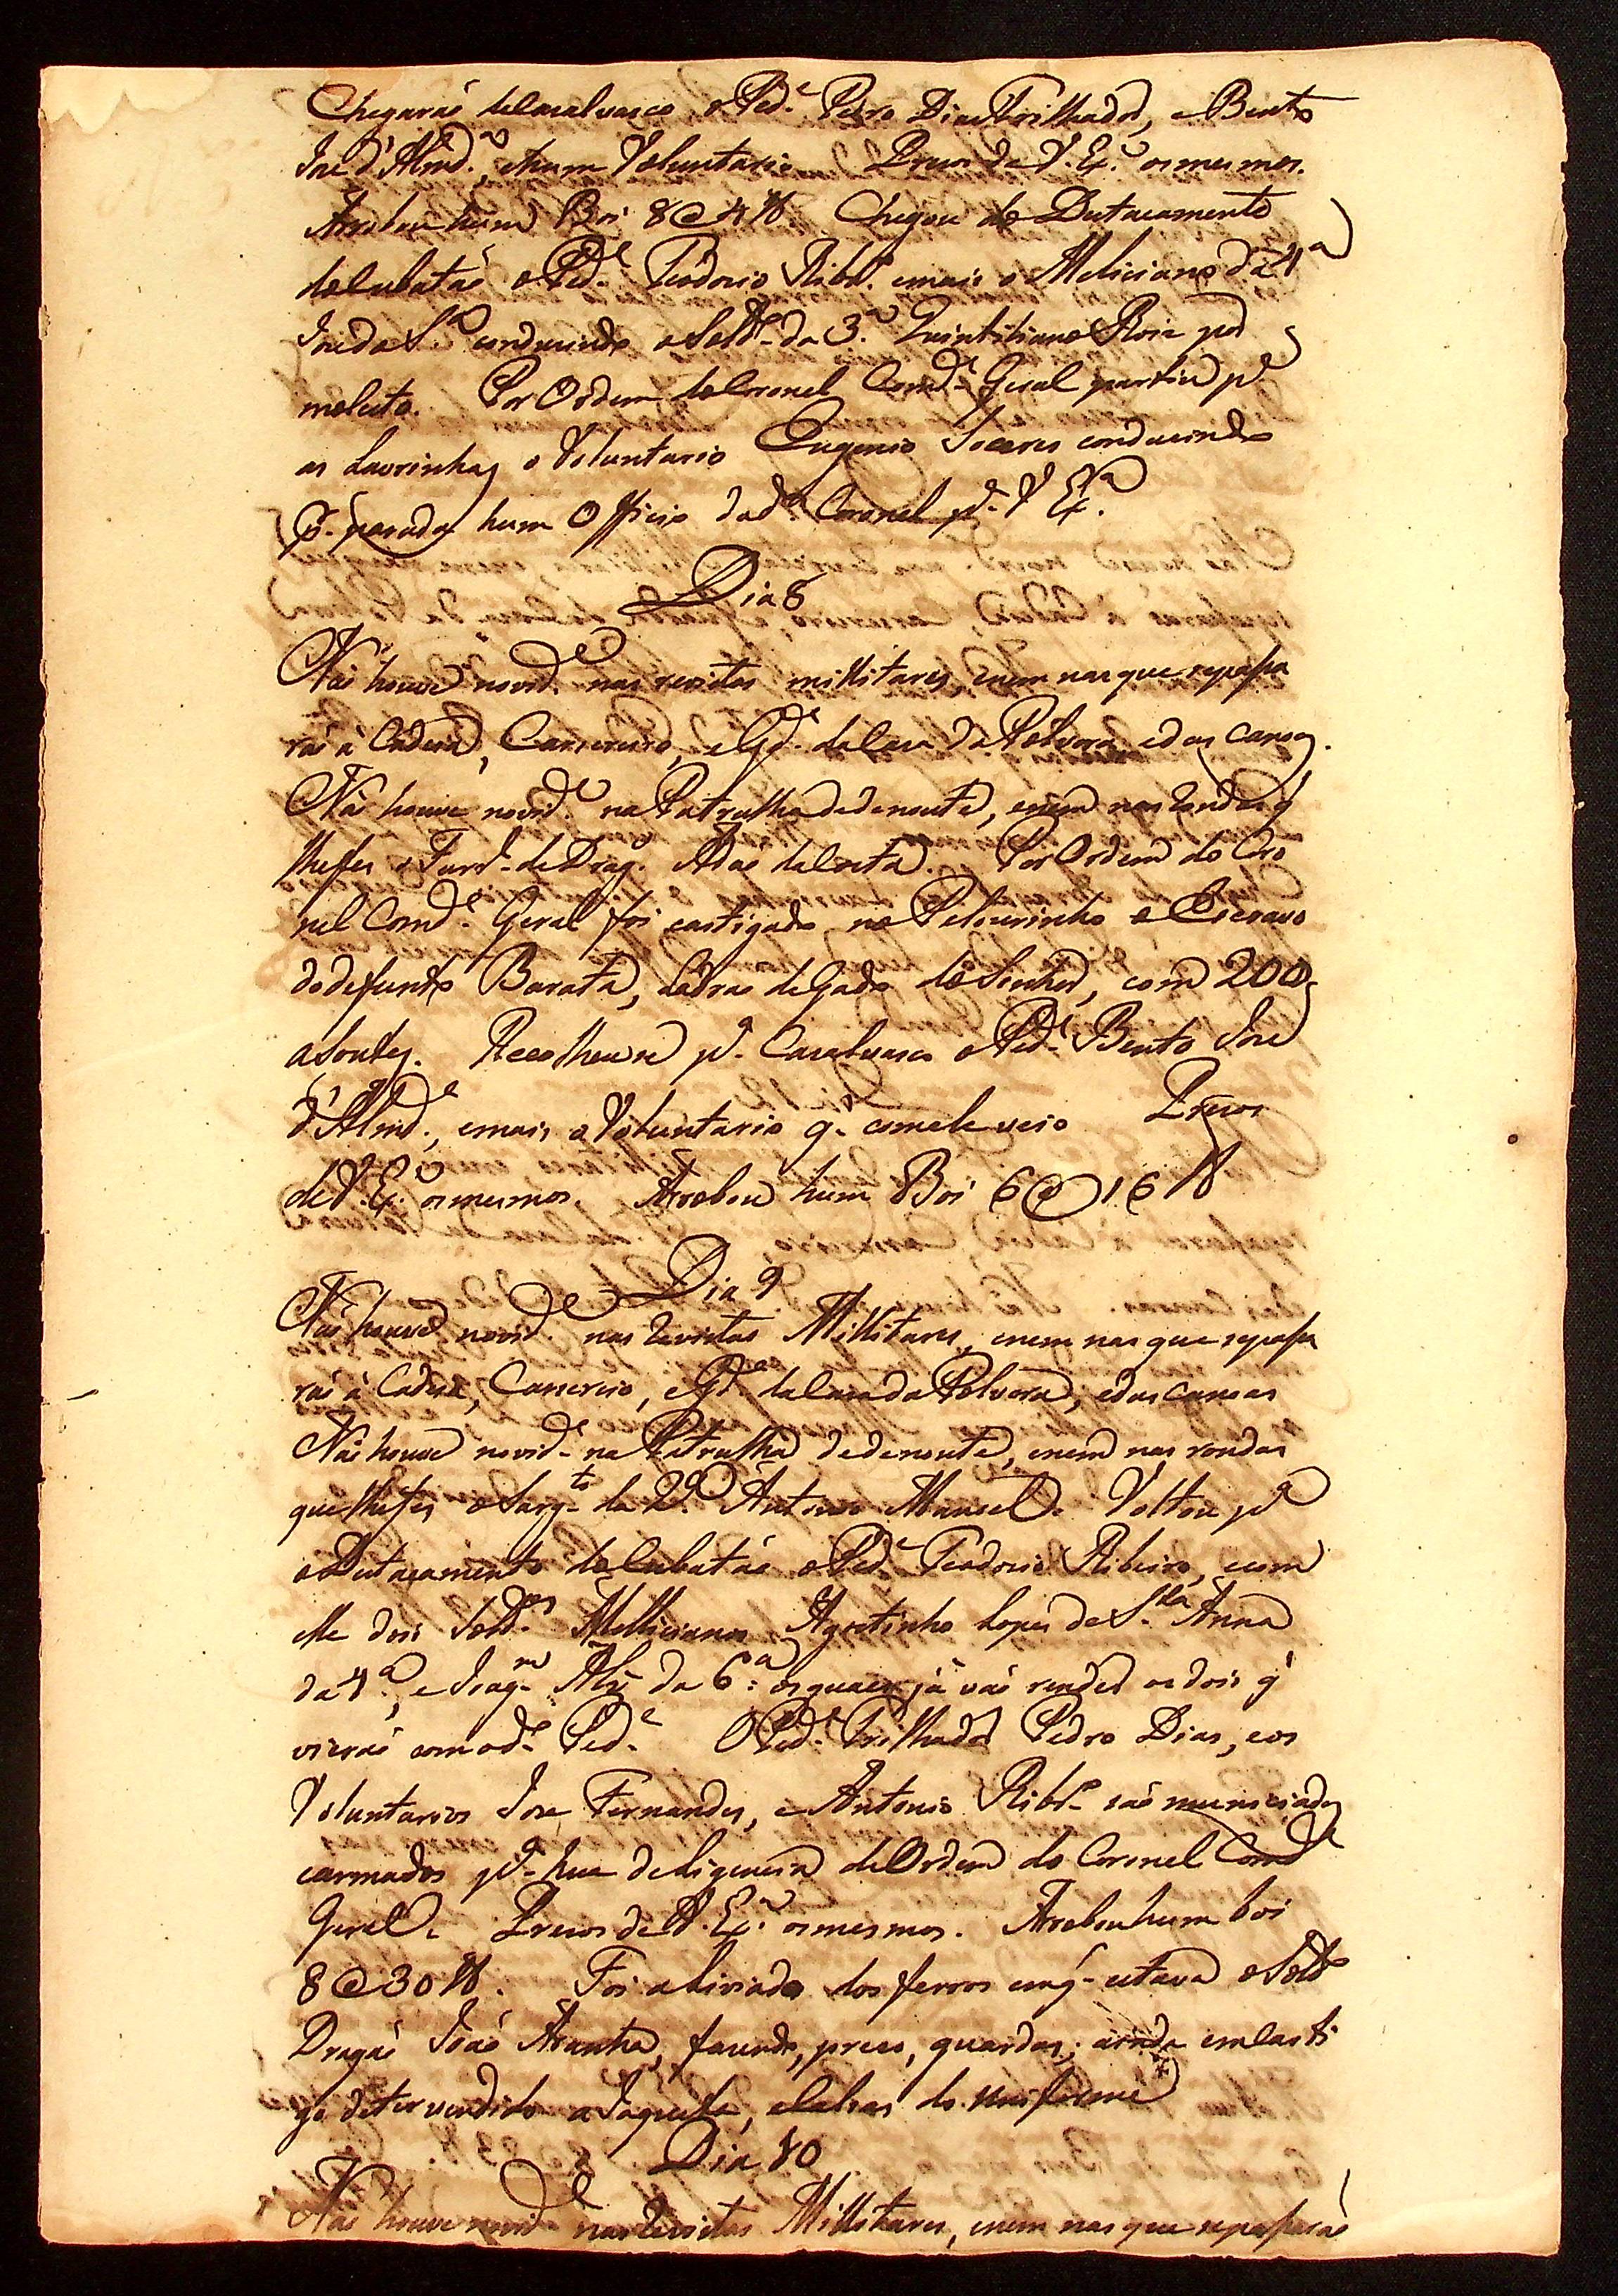 Chegarão de Casalvasco o Ped.e Pedro Dias Trilhador, e Bento
Joze d'Almd.a, e hum Voluntario Prezos de V. Ex.a os mesmos.
Arrobou hum Boi 8@4 lb. Chegou do Destacamento
do Cubatão o Ped.e Teodorio Ribr.o e mais o Meliciano da 4.a
Joze da S.a conduzindo o Sold.o da 3.a Quintiliano Roiz por
molesto. Por Ordem do Coronel Comd.e Geral partiu p.a
as Lavrinhas o Voluntario Eugenio Soares conduzindo
p.r parada hum Officio do d.o Coronel p.a V Ex.a
Dia 8
Não houve novid.e nas revistas millitares, e nem nas que se passa
rão à Cadeia, Carcereiro, e Gd.a da Casa da Polvora, e das canoas.
Não houve novid.e na Patrulha de denoute, e nem nas rondas q
lhe fes o Furr.l de Drag.s Adão da Costa. Por Ordem do Coro
nel Comd.e Geral foi castigado no Pelourinho o Escravo
do defunto Barata, ladrão de Gado do Senhor, com 200
asoutes. Recolheu se p.a Casalvasco o Ped.e Bento Joze
d'Almd.a, e mais o Voluntario q. com ele veio Prezos
de V. Ex.a os mesmos. Arrobou hum Boi 6@16 lb
Dia 9
Não houve novid.e nas revistas Millitares, e nem nas que se passa
rão à Cadeia, Carcereiro, e Gd.a da Casa da Polvora, e das canoas
Não houve novid.e na Patrulha de denoute, e nem nas rondas
que lhe fes o Sarg.to da 2.a Antonio Manoel. Voltou p.a
o Destacamento do Cubatão o Ped.e Teodorio Ribeiro, e com
elle dois Sold.os Mellicianos Agostinho Lopes de S.ta Anna
da 4.a, e Joaq.m Alz da 6.a os quaes já vão render os dois q
vierão com o d.o Ped.e O Ped.e Trilhador Pedro Dias, e os
Voluntarios Joze Fernandes, e Antonio Ribr.o são municiados
e armados p.a hua deligencia de Ordem do Coronel Comd.e
Geral. Prezos de V. Ex.a os mesmos. Arrobou hum boi
8@30 lb. Foi aliviado dos ferros em q. estava o Sold.o
Dragão João Aranha, fazendo, prezo, guardas; ainda em casti
go de ter vendido a Jaqueta, e calsas do uniforme
Dia 10
Não houve novid.e nas Revistas Millitares, e nem nas que se passarão